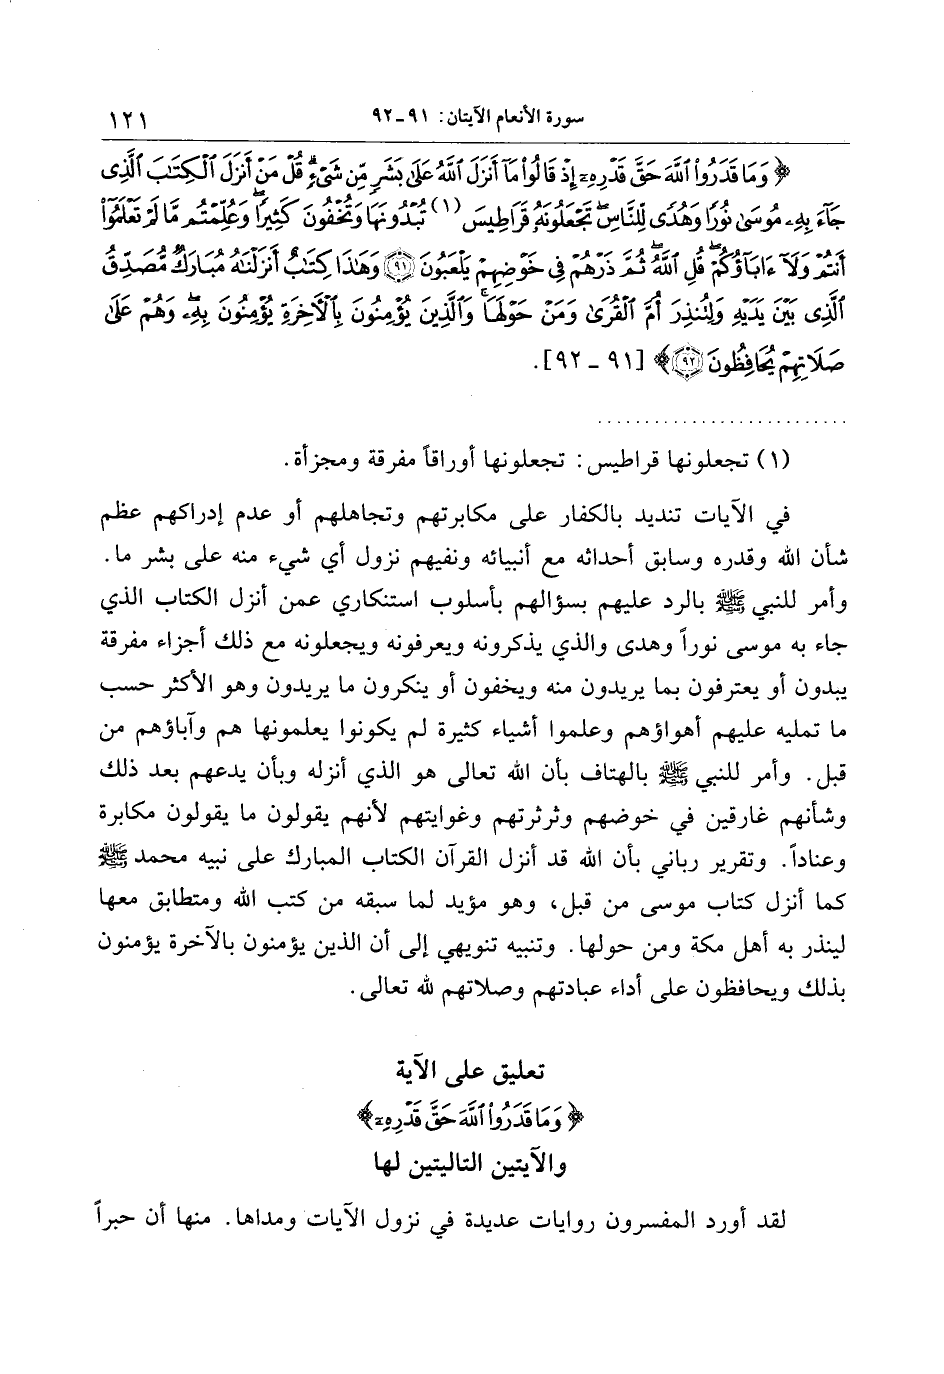 سورة الأنعام الآيتان: ٩١-٩٢ ١٢١
﴿ وَمَا قَدَرُواْ ٱللَّهَ حَقَّ قَدۡرِهِۦٓ إِذۡ قَالُواْ مَآ أَنزَلَ ٱللَّهُ عَلَىٰ بَشَرٖ مِّن شَيۡءٖۗ قُلۡ مَنۡ أَنزَلَ ٱلۡكِتَٰبَ ٱلَّذِي
جَآءَ بِهِۦ مُوسَىٰ نُورٗا وَهُدٗى لِّلنَّاسِۖ تَجۡعَلُونَهُۥ قَرَاطِيسَ (١) تُبۡدُونَهَا وَتُخۡفُونَ كَثِيرٗاۖ وَعُلِّمۡتُم مَّا لَمۡ تَعۡلَمُوٓاْ
أَنتُمۡ وَلَآ ءَابَآؤُكُمۡۖ قُلِ ٱللَّهُۖ ثُمَّ ذَرۡهُمۡ فِي خَوۡضِهِمۡ يَلۡعَبُونَ ٩١ وَهَٰذَا كِتَٰبٌ أَنزَلۡنَٰهُ مُبَارَكٞ مُّصَدِّقُ
ٱلَّذِي بَيۡنَ يَدَيۡهِ وَلِتُنذِرَ أُمَّ ٱلۡقُرَىٰ وَمَنۡ حَوۡلَهَاۚ وَٱلَّذِينَ يُؤۡمِنُونَ بِٱلۡأٓخِرَةِ يُؤۡمِنُونَ بِهِۦۖ وَهُمۡ عَلَىٰ
صَلَاتِهِمۡ يُحَافِظُونَ ٩٢ ﴾ [٩١ - ٩٢].
(١) تجعلونها قراطيس: تجعلونها أوراقاً مفرقة ومجزأة.
في الآيات تنديد بالكفار على مكابرتهم وتجاهلهم أو عدم إدراكهم عظم
شأن الله وقدره وسابق أحداثه مع أنبيائه ونفيهم نزول أي شيء منه على بشر ما.
وأمر للنبي ﷺ بالرد عليهم بسؤالهم بأسلوب استنكاري عمن أنزل الكتاب الذي
جاء به موسى نوراً وهدى والذي يذكرونه ويعرفونه ويجعلونه مع ذلك أجزاء مفرقة
يبدون أو يعترفون بما يريدون منه ويخفون أو ينكرون ما يريدون وهو الأكثر حسب
ما تمليه عليهم أهواؤهم وعلموا أشياء كثيرة لم يكونوا يعلمونها هم وآباؤهم من
قبل. وأمر للنبي ﷺ بالهتاف بأن الله تعالى هو الذي أنزله وبأن يدعهم بعد ذلك
وشأنهم غارقين في خوضهم وثرثرتهم وغوايتهم لأنهم يقولون ما يقولون مكابرة
وعناداً. وتقرير رباني بأن الله قد أنزل القرآن الكتاب المبارك على نبيه محمد ﷺ
كما أنزل كتاب موسى من قبل، وهو مؤيد لما سبقه من كتب الله ومتطابق معها
لينذر به أهل مكة ومن حولها. وتنبيه تنويهي إلى أن الذين يؤمنون بالآخرة يؤمنون
بذلك ويحافظون على أداء عبادتهم وصلاتهم لله تعالى.
تعليق على الآية
﴿ وَمَا قَدَرُواْ ٱللَّهَ حَقَّ قَدۡرِهِۦٓ ﴾
والآيتين التاليتين لها
لقد أورد المفسرون روايات عديدة في نزول الآيات ومداها. منها أن حبراً